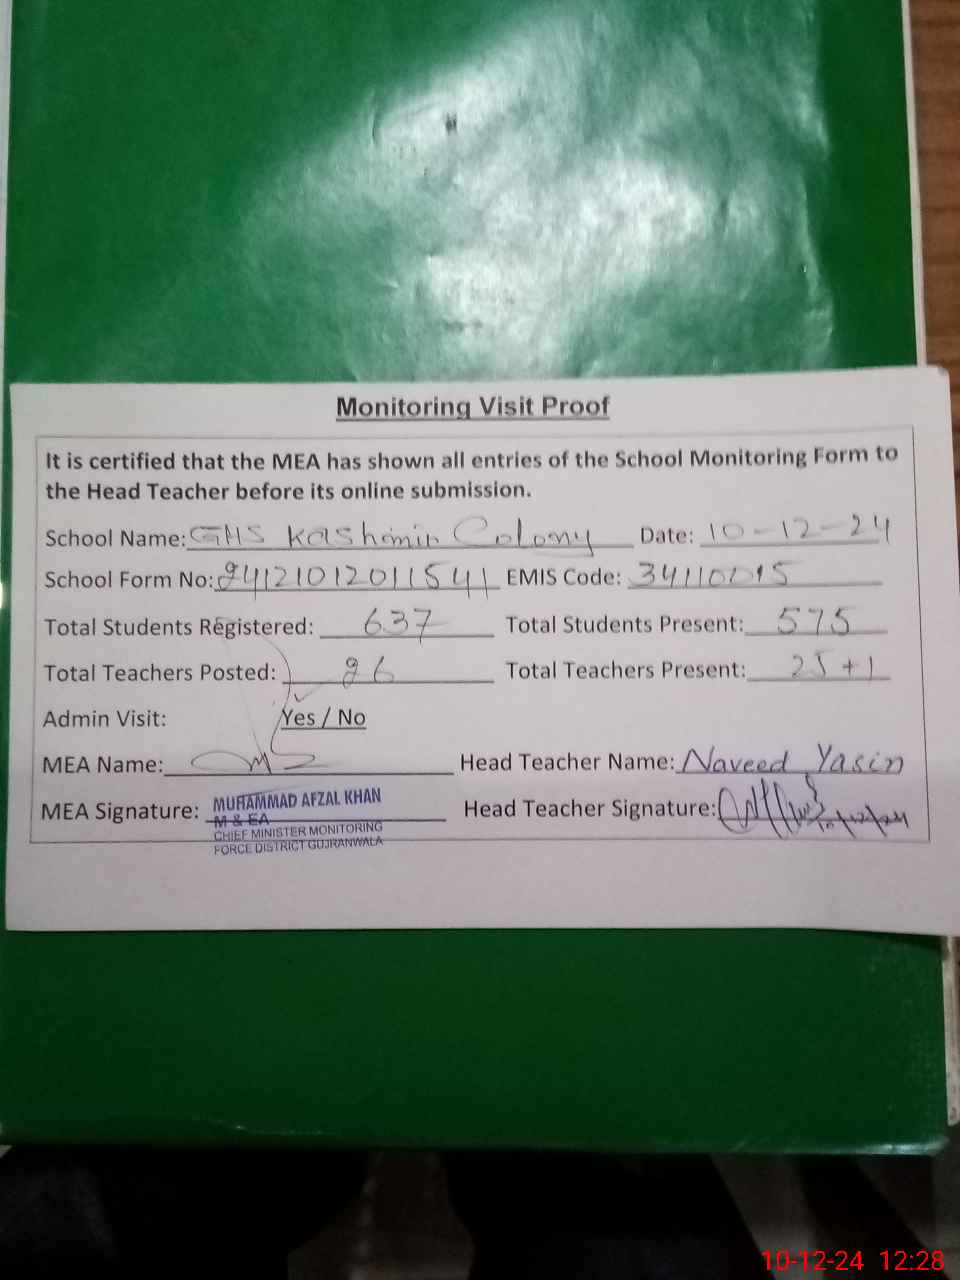 Monitoring Visit Proof
It is certified that the MEA has shown all entries of the School Monitoring Form to
the Head Teacher before its online submission.
School Name: GHS Kashmir Colony Date: 10-12-24
School Form No: 24121012011541 EMIS Code: 34110015
Total Students Registered: 637 Total Students Present: 575
Total Teachers Posted: 26 Total Teachers Present: 25+1
Admin Visit: Yes / No
MEA Name: Head Teacher Name: Naveed Yasin
MEA Signature: MUHAMMAD AFZAL KHAN Head Teacher Signature: 10/12/24
M & EA
CHIEF MINISTER MONITORING
FORCE DISTRICT GUJRANWALA
10-12-24 12:28